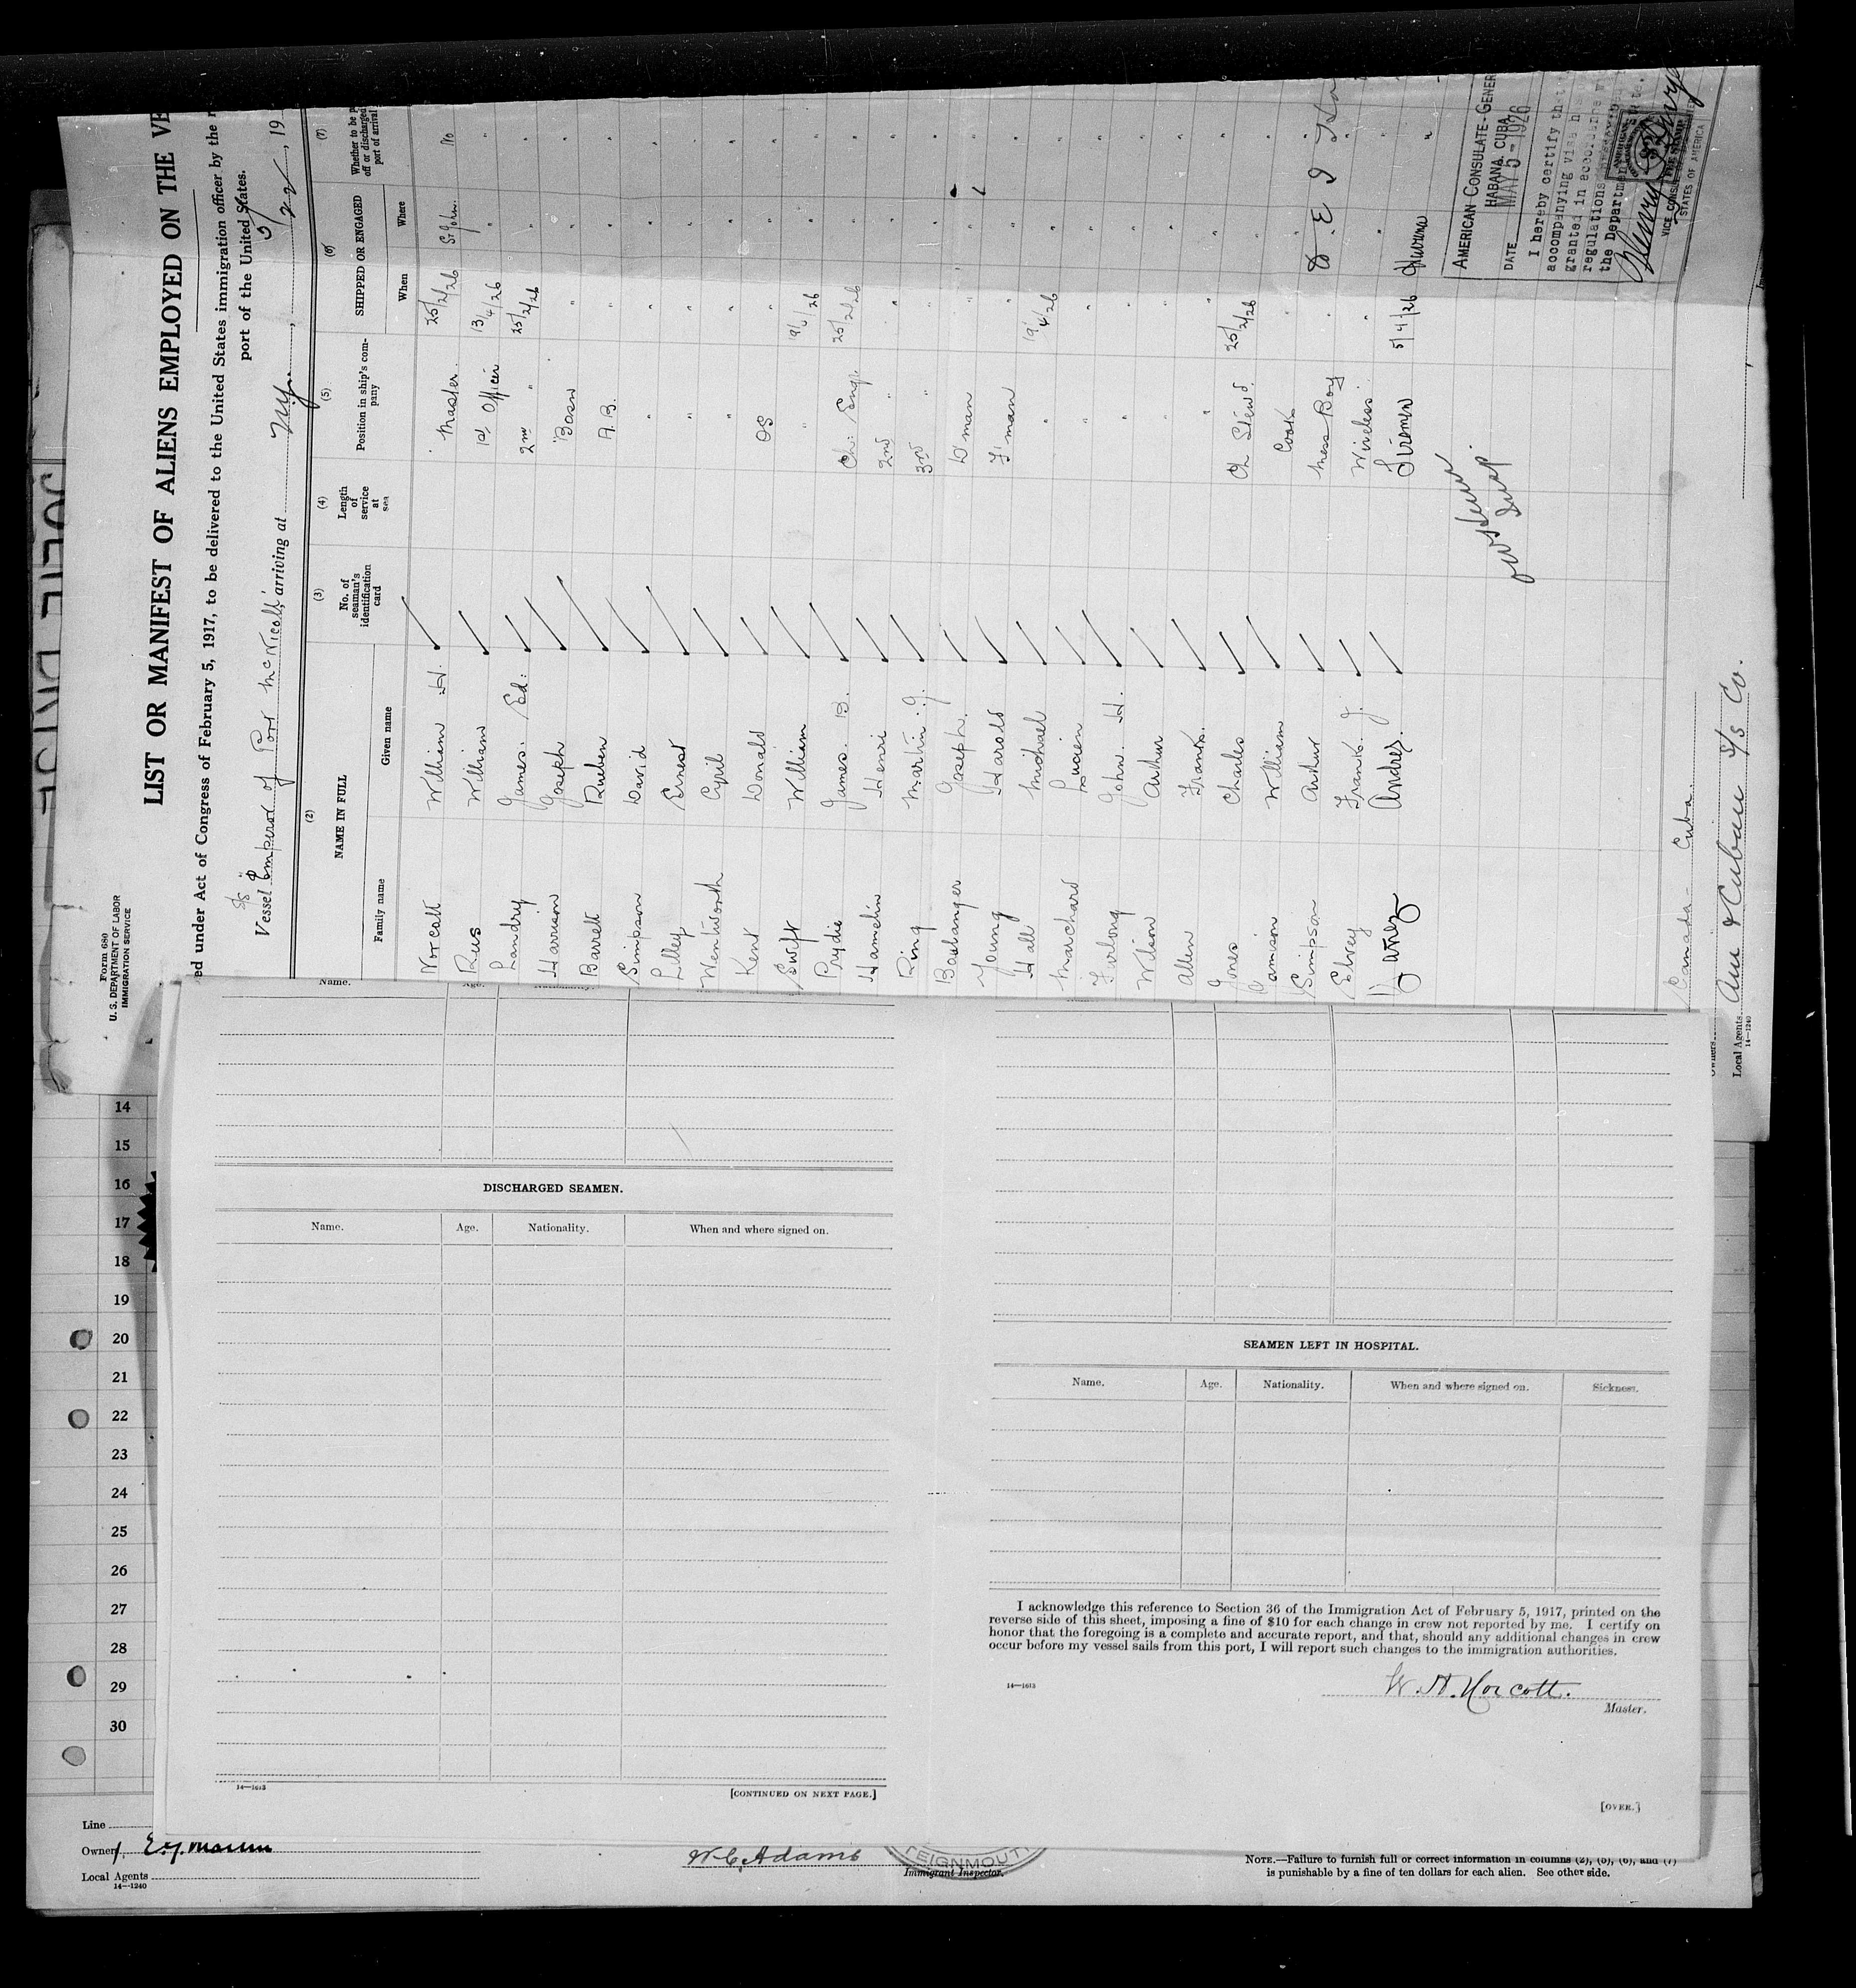 Form 680
U. S. DEPARTMENT OF LABOR
IMMIGRATION SERVICE
LIST OR MANIFEST OF ALIENS EMPLOYED ON THE VE
ed under Act of Congress of February 5, 1917, to be delivered to the United States immigration officer by the
port of the United States.
S/S
Vessel Emperor of Port McNicoll, arriving at N.Y., 19
(2) (3) (4) (5) (6) (7)
NAME IN FULL No. of seaman's identification card Length of service at sea Position in ship's company SHIPPED OR ENGAGED Whether to be p off or discharged port of arrival
Family name Given name When Where
Norcott William H. Master. 25/2/26 St John. No
Rus William 1st Officer 13/4/26 " "
Landry James. Ed: 2nd " 25/2/26 " "
Harrison Joseph Bosn " " "
Barrett Rueben A.B. " " "
Simpson David " " " "
Lilley Ernest " " " "
Wentworth Cyril " " " "
Kent Donald OS " " "
Swift William " 19/4/26 " "
Prydie James. B. Ch: Engr. 25/2/26 " "
Hamelin Henri 2nd " " " "
Ring Martin. J. 3rd " " " "
Baslanger Joseph. D'man " " "
Young Harold F'man " " "
Hall Michael " 19/4/26 " "
Marchard Lucien " " " "
Furlong John. H. " " " "
Wilson Arthur " " " "
Allen Frank. " " " "
Jones Charles Ch Stewd. 25/2/26 " "
Camison William Cook " " "
Simpson Arthur Mess Boy " " "
Elvey Frank. J. Wireless. " " "
Yanez Andrez. Firemen 5/4/26 Havana "
AMERICAN CONSULATE-GENER
HABANA, CUBA.
DATE MAY 5 - 1926
I hereby certify that
accompanying visa h
granted in accordance w
regulations
the Department
VICE CONSUL
STATES OF AMERICA
Owners Canada - Cuba.
Local Agents Am & Cuban S/S Co.
14—1240
14
15
16
17
18
19
20
21
22
23
24
25
26
27
28
29
30
Name. Age. Nationality.
DISCHARGED SEAMEN.
Name. Age. Nationality. When and where signed on.
14—1613
[CONTINUED ON NEXT PAGE.]
SEAMEN LEFT IN HOSPITAL.
Name. Age. Nationality. When and where signed on. Sickness.
I acknowledge this reference to Section 36 of the Immigration Act of February 5, 1917, printed on the
reverse side of this sheet, imposing a fine of $10 for each change in crew not reported by me. I certify on
honor that the foregoing is a complete and accurate report, and that, should any additional changes in crew
occur before my vessel sails from this port, I will report such changes to the immigration authorities.
14—1613
W. H. Norcott.
Master.
[OVER.]
Line
Owner E. J. Martin
Local Agents
14—1240
W. C. Adams
Immigrant Inspector.
TEIGNMOUT
NOTE.—Failure to furnish full or correct information in columns (2), (5), (6), and (7)
is punishable by a fine of ten dollars for each alien. See other side.